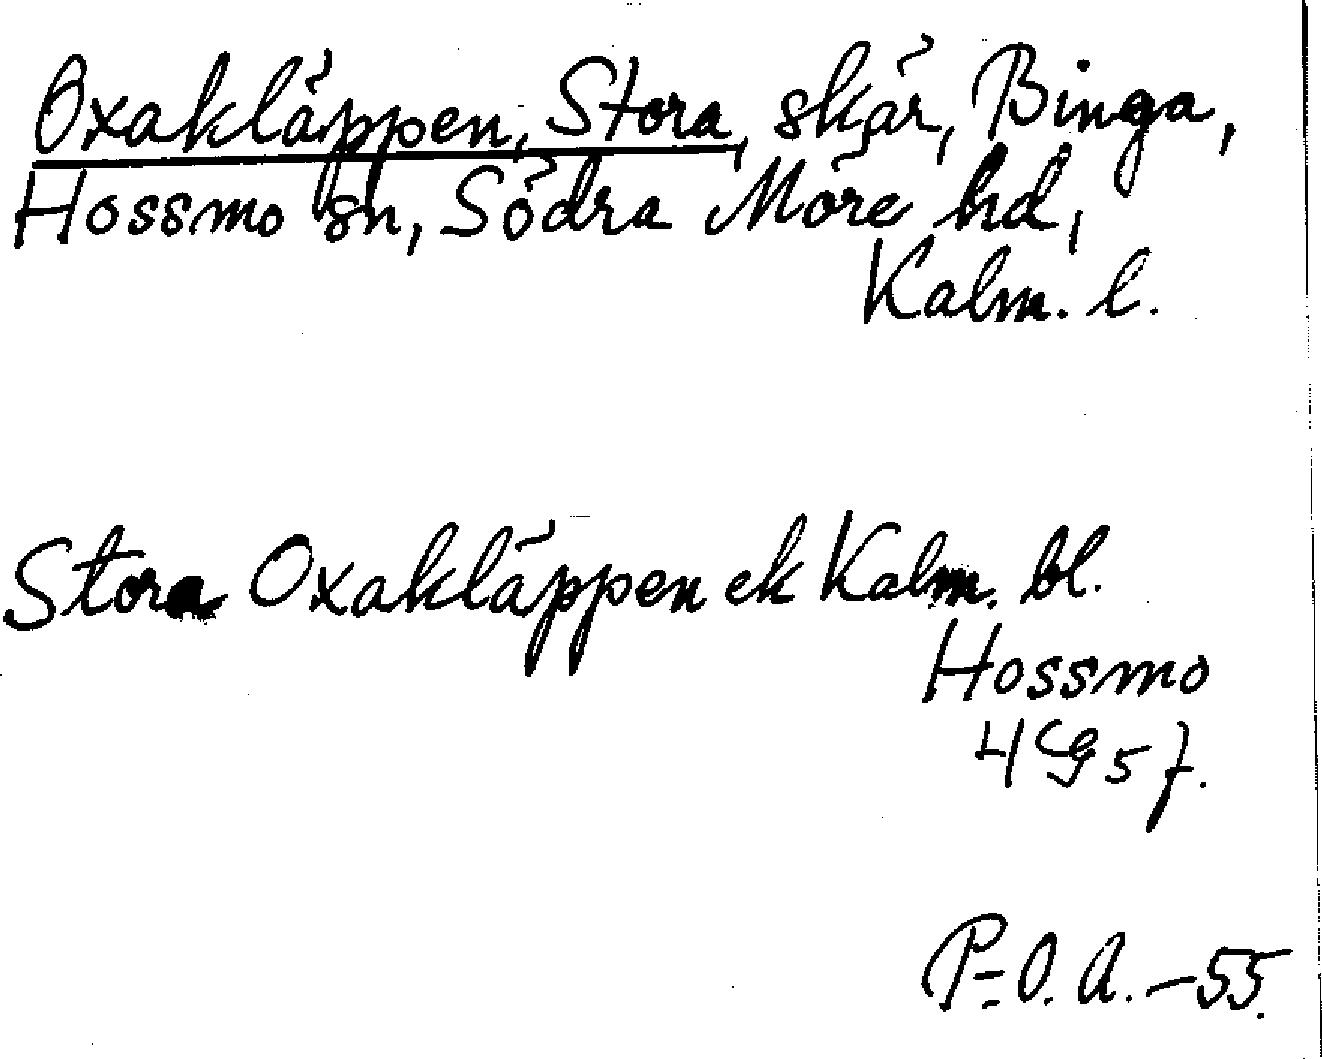 Oxakläppen, Stora, skär, Binga,
Hossmo sn, Södra Möre hd,
Kalm. l.
Stora Oxakläppen ek Kalm. bl.
Hossmo
4G5f.
P-O. A. -55.